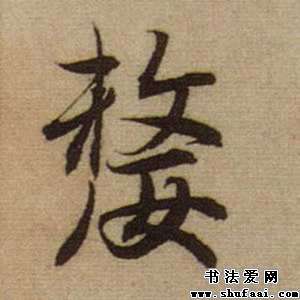 嫠
书法爱网
www.shufaai.com